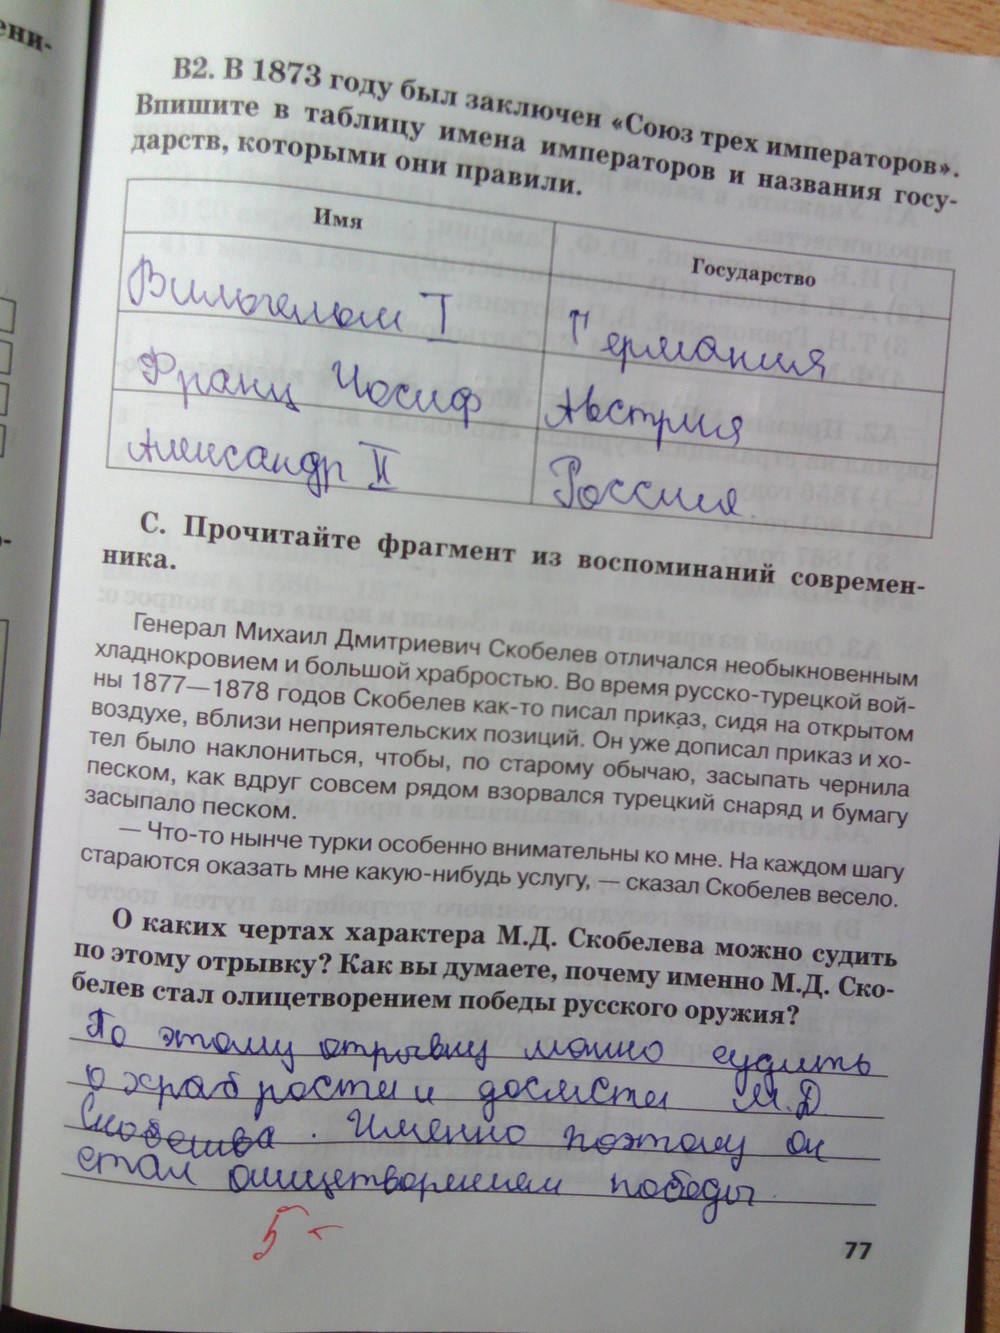 ени-
В2. В 1873 году был заключен «Союз трех императоров».
Впишите в таблицу имена императоров и названия госу-
дарств, которыми они правили.
Имя Государство
Вильгельм I Германия
Франц Иосиф Австрия
Александр II Россия.
С. Прочитайте фрагмент из воспоминаний современ-
ника.
Генерал Михаил Дмитриевич Скобелев отличался необыкновенным
хладнокровием и большой храбростью. Во время русско-турецкой вой-
ны 1877—1878 годов Скобелев как-то писал приказ, сидя на открытом
воздухе, вблизи неприятельских позиций. Он уже дописал приказ и хо-
тел было наклониться, чтобы, по старому обычаю, засыпать чернила
песком, как вдруг совсем рядом взорвался турецкий снаряд и бумагу
засыпало песком.
— Что-то нынче турки особенно внимательны ко мне. На каждом шагу
стараются оказать мне какую-нибудь услугу, — сказал Скобелев весело.
О каких чертах характера М.Д. Скобелева можно судить
по этому отрывку? Как вы думаете, почему именно М.Д. Ско-
белев стал олицетворением победы русского оружия?
По этому отрывку можно судить
о храбрости и М.Д.
Скобелева. Именно поэтому он
стал олицетворением победы.
5-
77